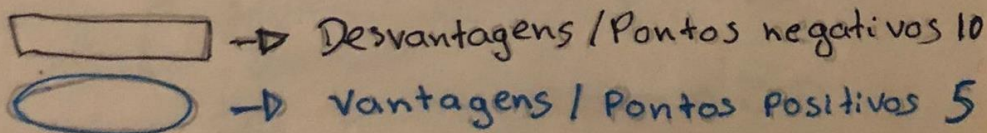 Desvantagens / Pontos negativos 10
Vantagens / Pontos Positivos 5